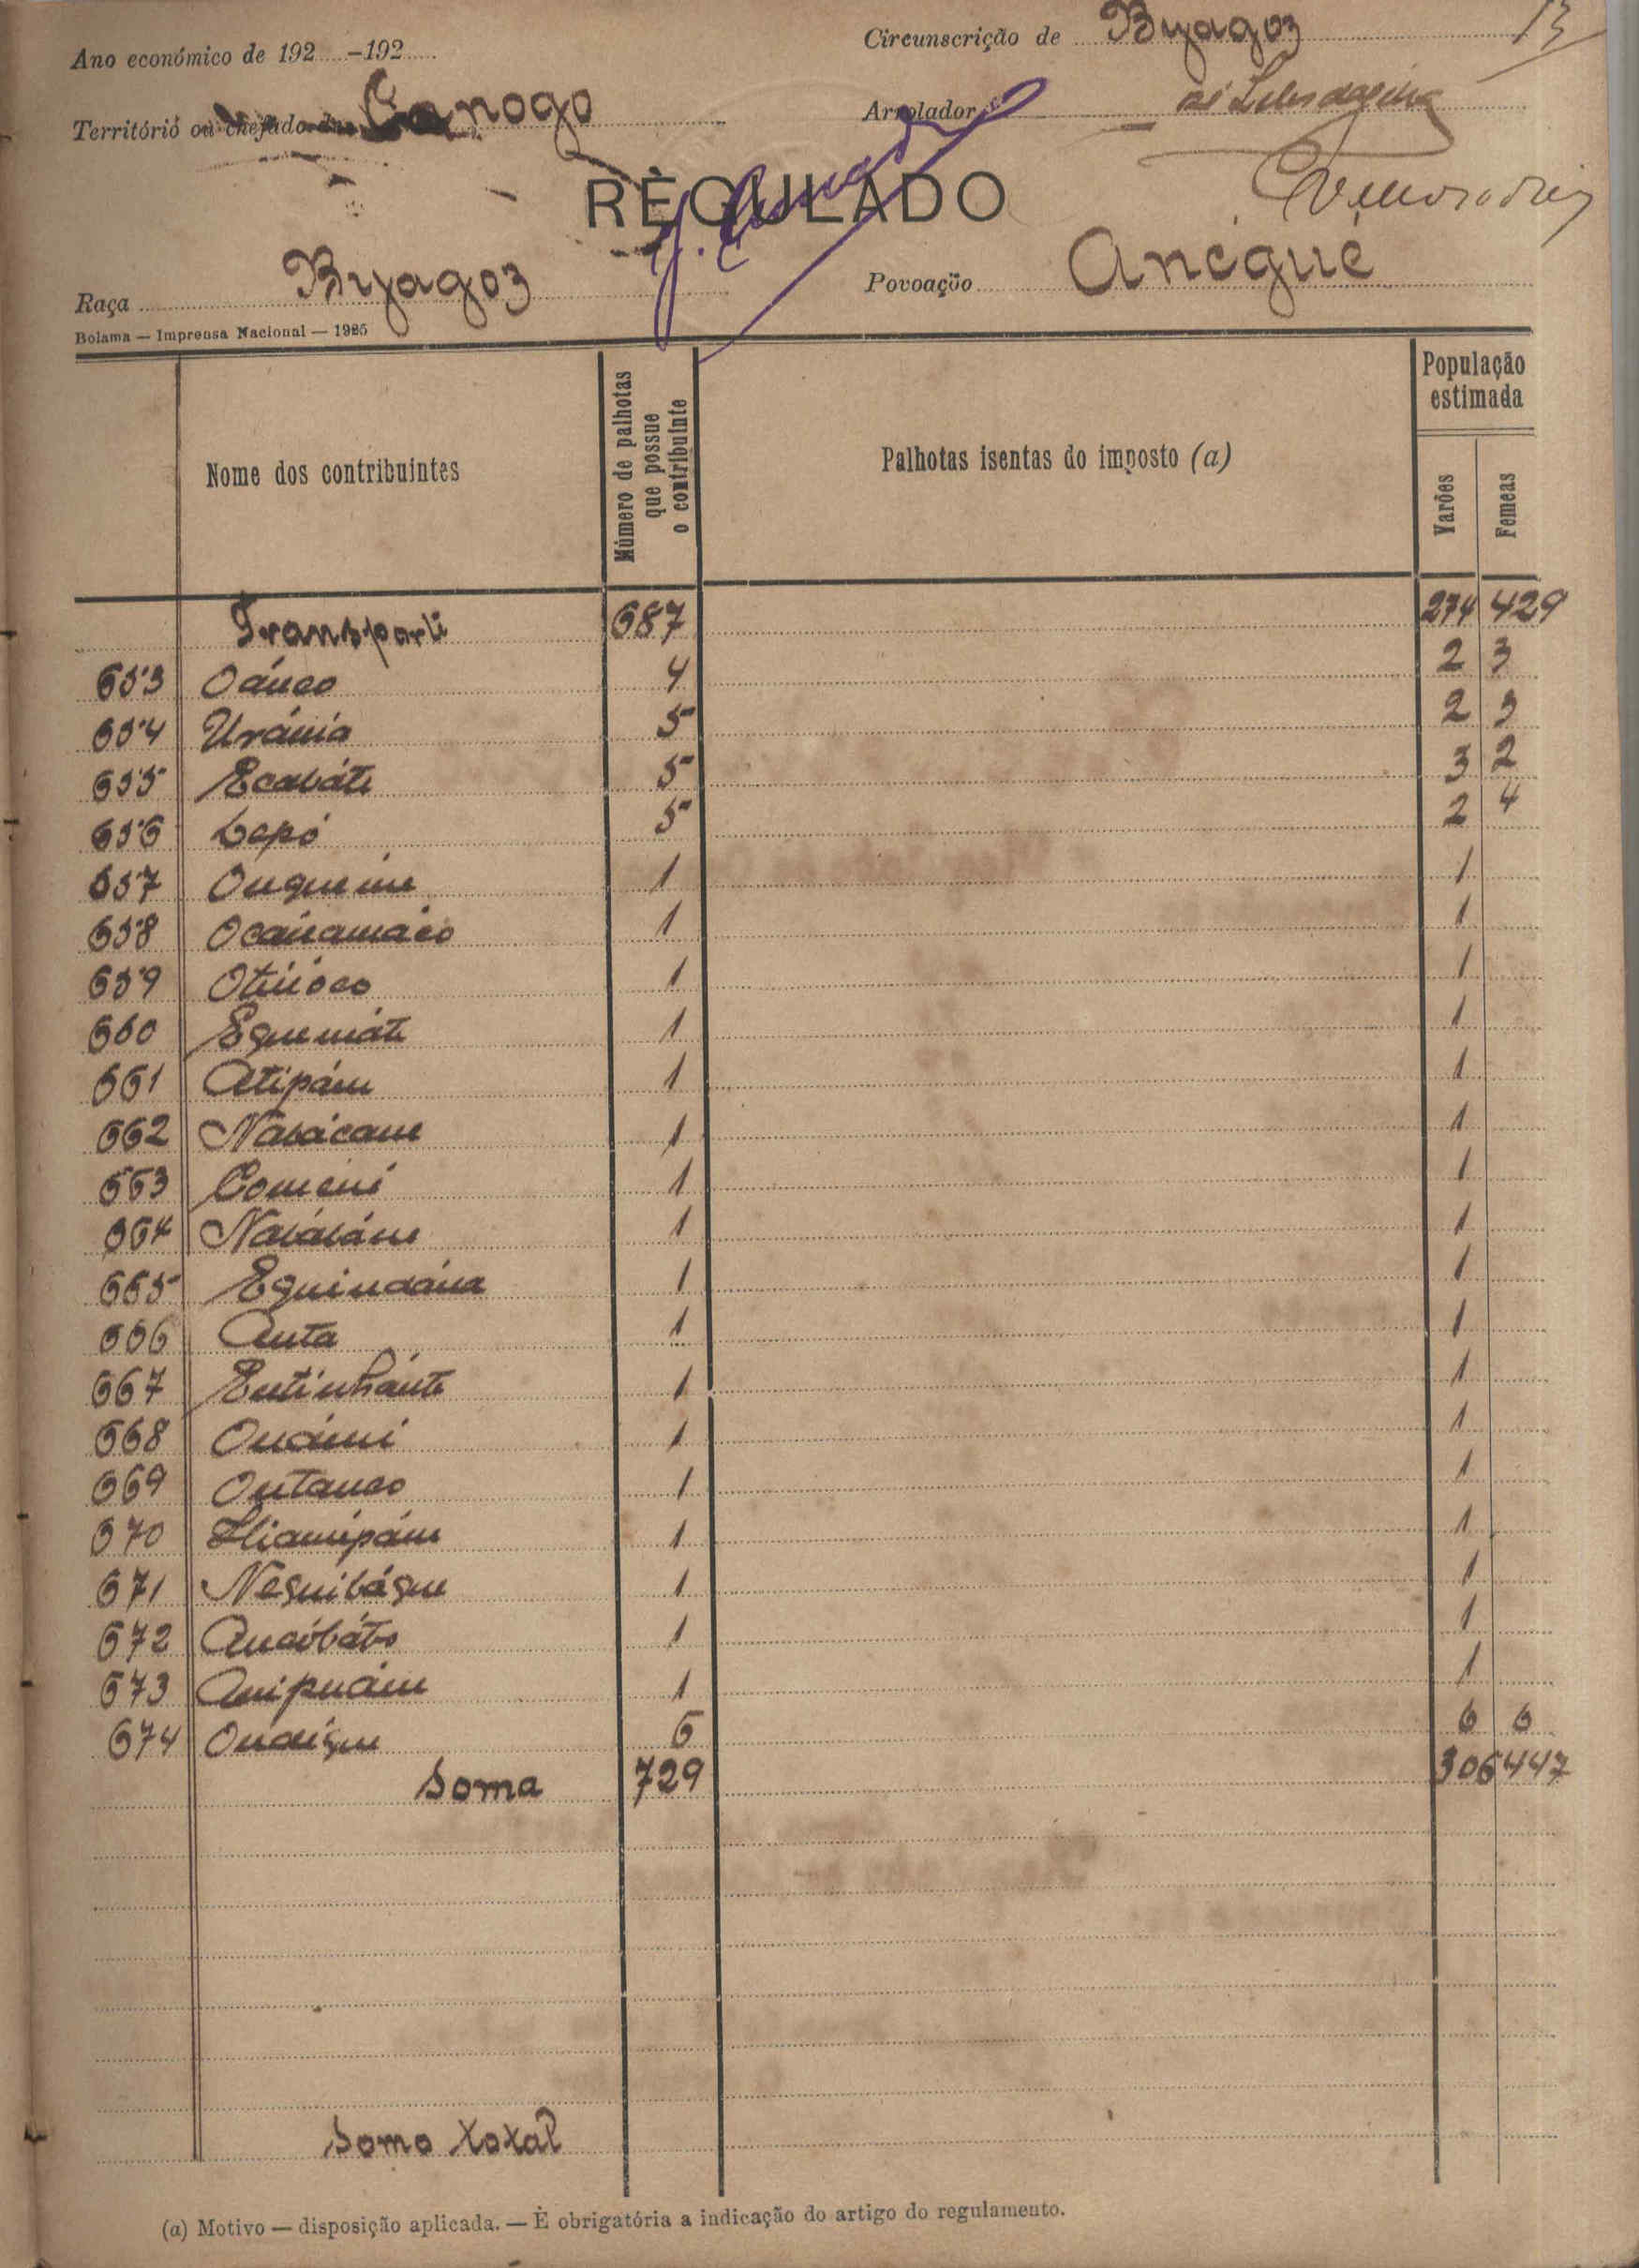 Ano económico de 192.....-192.....
Circunscrição de Byagoz
13
Território ou chefado de Canogo
Arrolador
REGULADO
Raça Byagoz
Povoação Anégué
Bolama — Imprensa Nacional — 1925
Nome dos contribuintes
Número de palhotas que possue o contribuinte
Palhotas isentas do imposto (a)
População estimada
Varões
Femeas
Transporte 687 274 429
653 Oánco 4 2 3
654 Uránia 5 2 3
655 Ecabáte 5 3 2
656 Lepó 5 2 4
657 1 1
658 1 1
659 1 1
660 Equemáte 1 1
661 Atipáne 1 1
662 Nabácane 1 1
663 1 1
664 Nabábáne 1 1
665 1 1
666 Anta 1 1
667 Entinháute 1 1
668 1 1
669 Ontanco 1 1
670 1 1
671 Nequibágue 1 1
672 Ancóbáto 1 1
673 1 1
674 6 6 6
Soma 729 306 447
Soma total
(a) Motivo — disposição aplicada. — É obrigatória a indicação do artigo do regulamento.